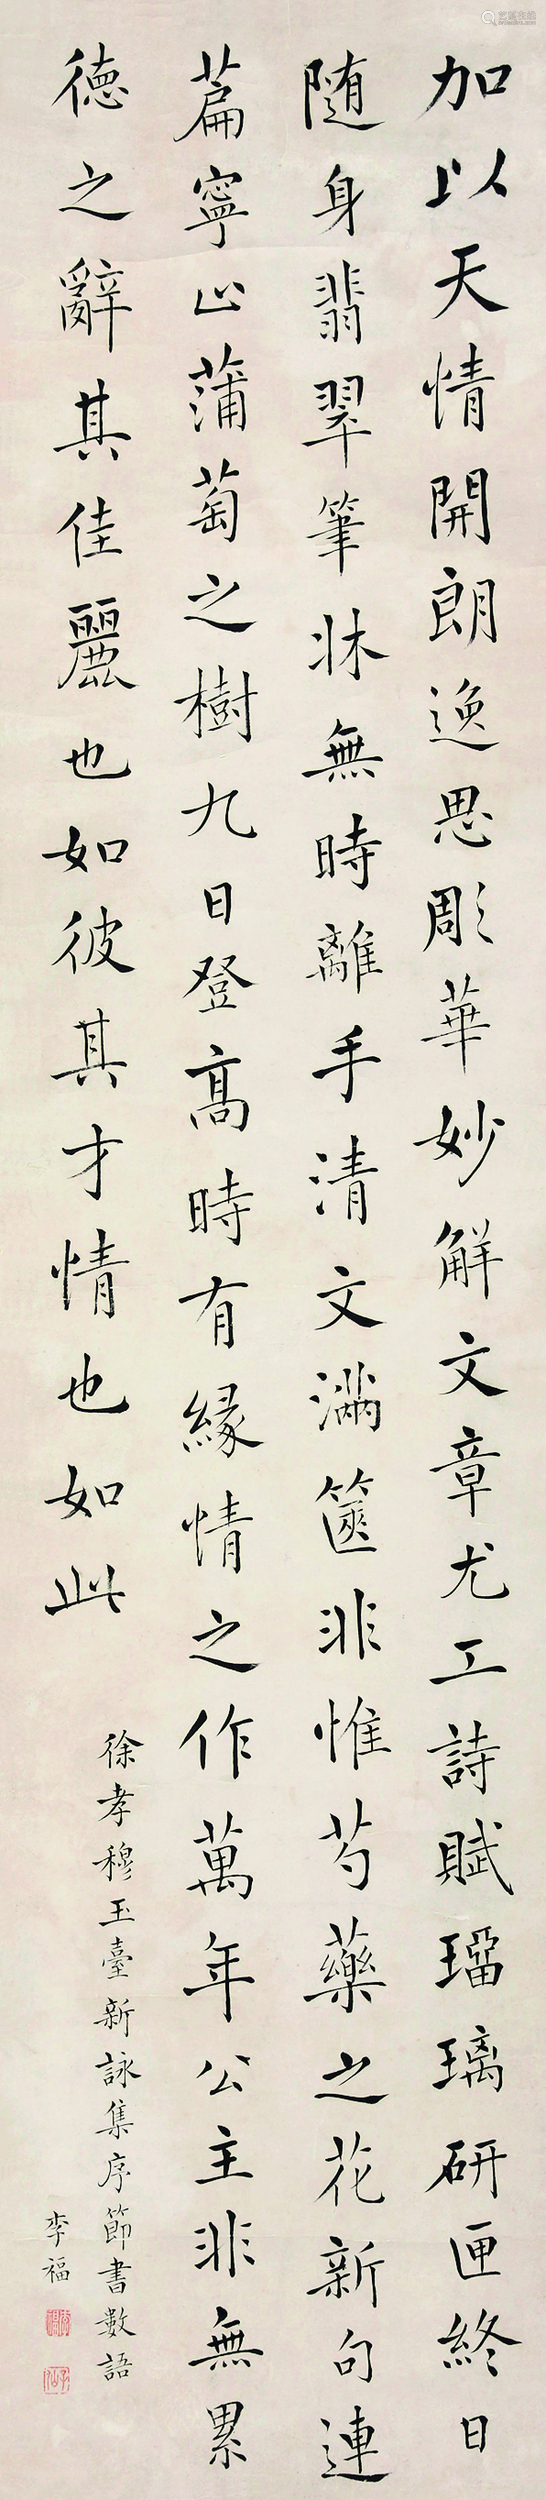 加以天情開朗逸思彫華妙解文章尤工詩賦瑠璃研匣終日
隨身翡翠筆牀無時離手清文滿篋非惟芍藥之花新句連
篇寧止蒲萄之樹九日登高時有緣情之作萬年公主非無累
德之辭其佳麗也如彼其才情也如此
徐孝穆玉臺新詠集序節書數語
李福